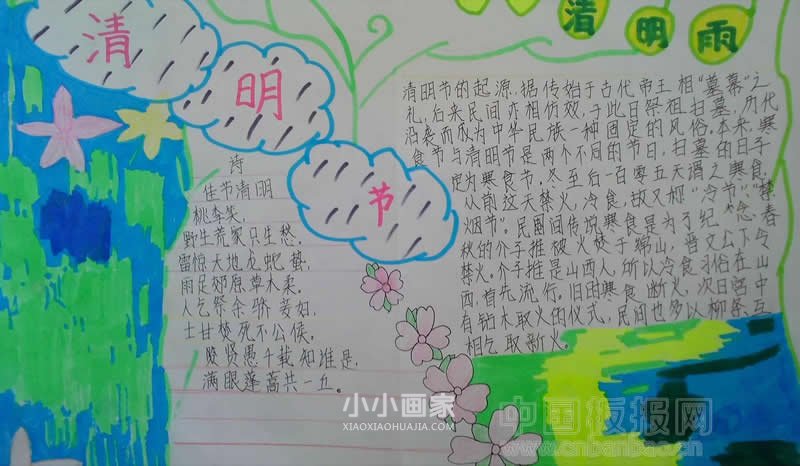 清
明
节
清 明 雨
诗
佳节清明
桃李笑,
野生荒冢只生愁,
雷惊大地龙蛇蛰,
雨足郊原草木柔。
人乞祭余骄妾妇,
士甘焚死不公侯。
贤愚千载知谁是,
满眼蓬蒿共一丘。
清明节的起源,据传始于古代帝王相“墓幕”之
礼,后来民间亦相仿效,于此日祭祖扫墓,历代
沿袭而成为中华民族一种固定的风俗。本来,寒
食节与清明节是两个不同的节日,扫墓的日子
定为寒食节,冬至后一百零五天谓之寒食,
从前这天禁火,冷食,故又称“冷节”“禁
烟节”。民国间传说寒食是为了纪念春
秋的介子推被火焚于绵山,晋文公下令
禁火。介子推是山西人,所以冷食习俗在山
西首先流行,旧时寒食断火,次日宫中
有钻木取火的仪式,民间也多以柳条互
相乞取新火。
小小画家
XIAOXIAOHUAJIA.COM
中国板报网
www.cnbanbao.cn